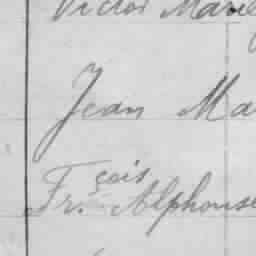 Victor Marie
Jean Ma
Fr.çois Alphonse